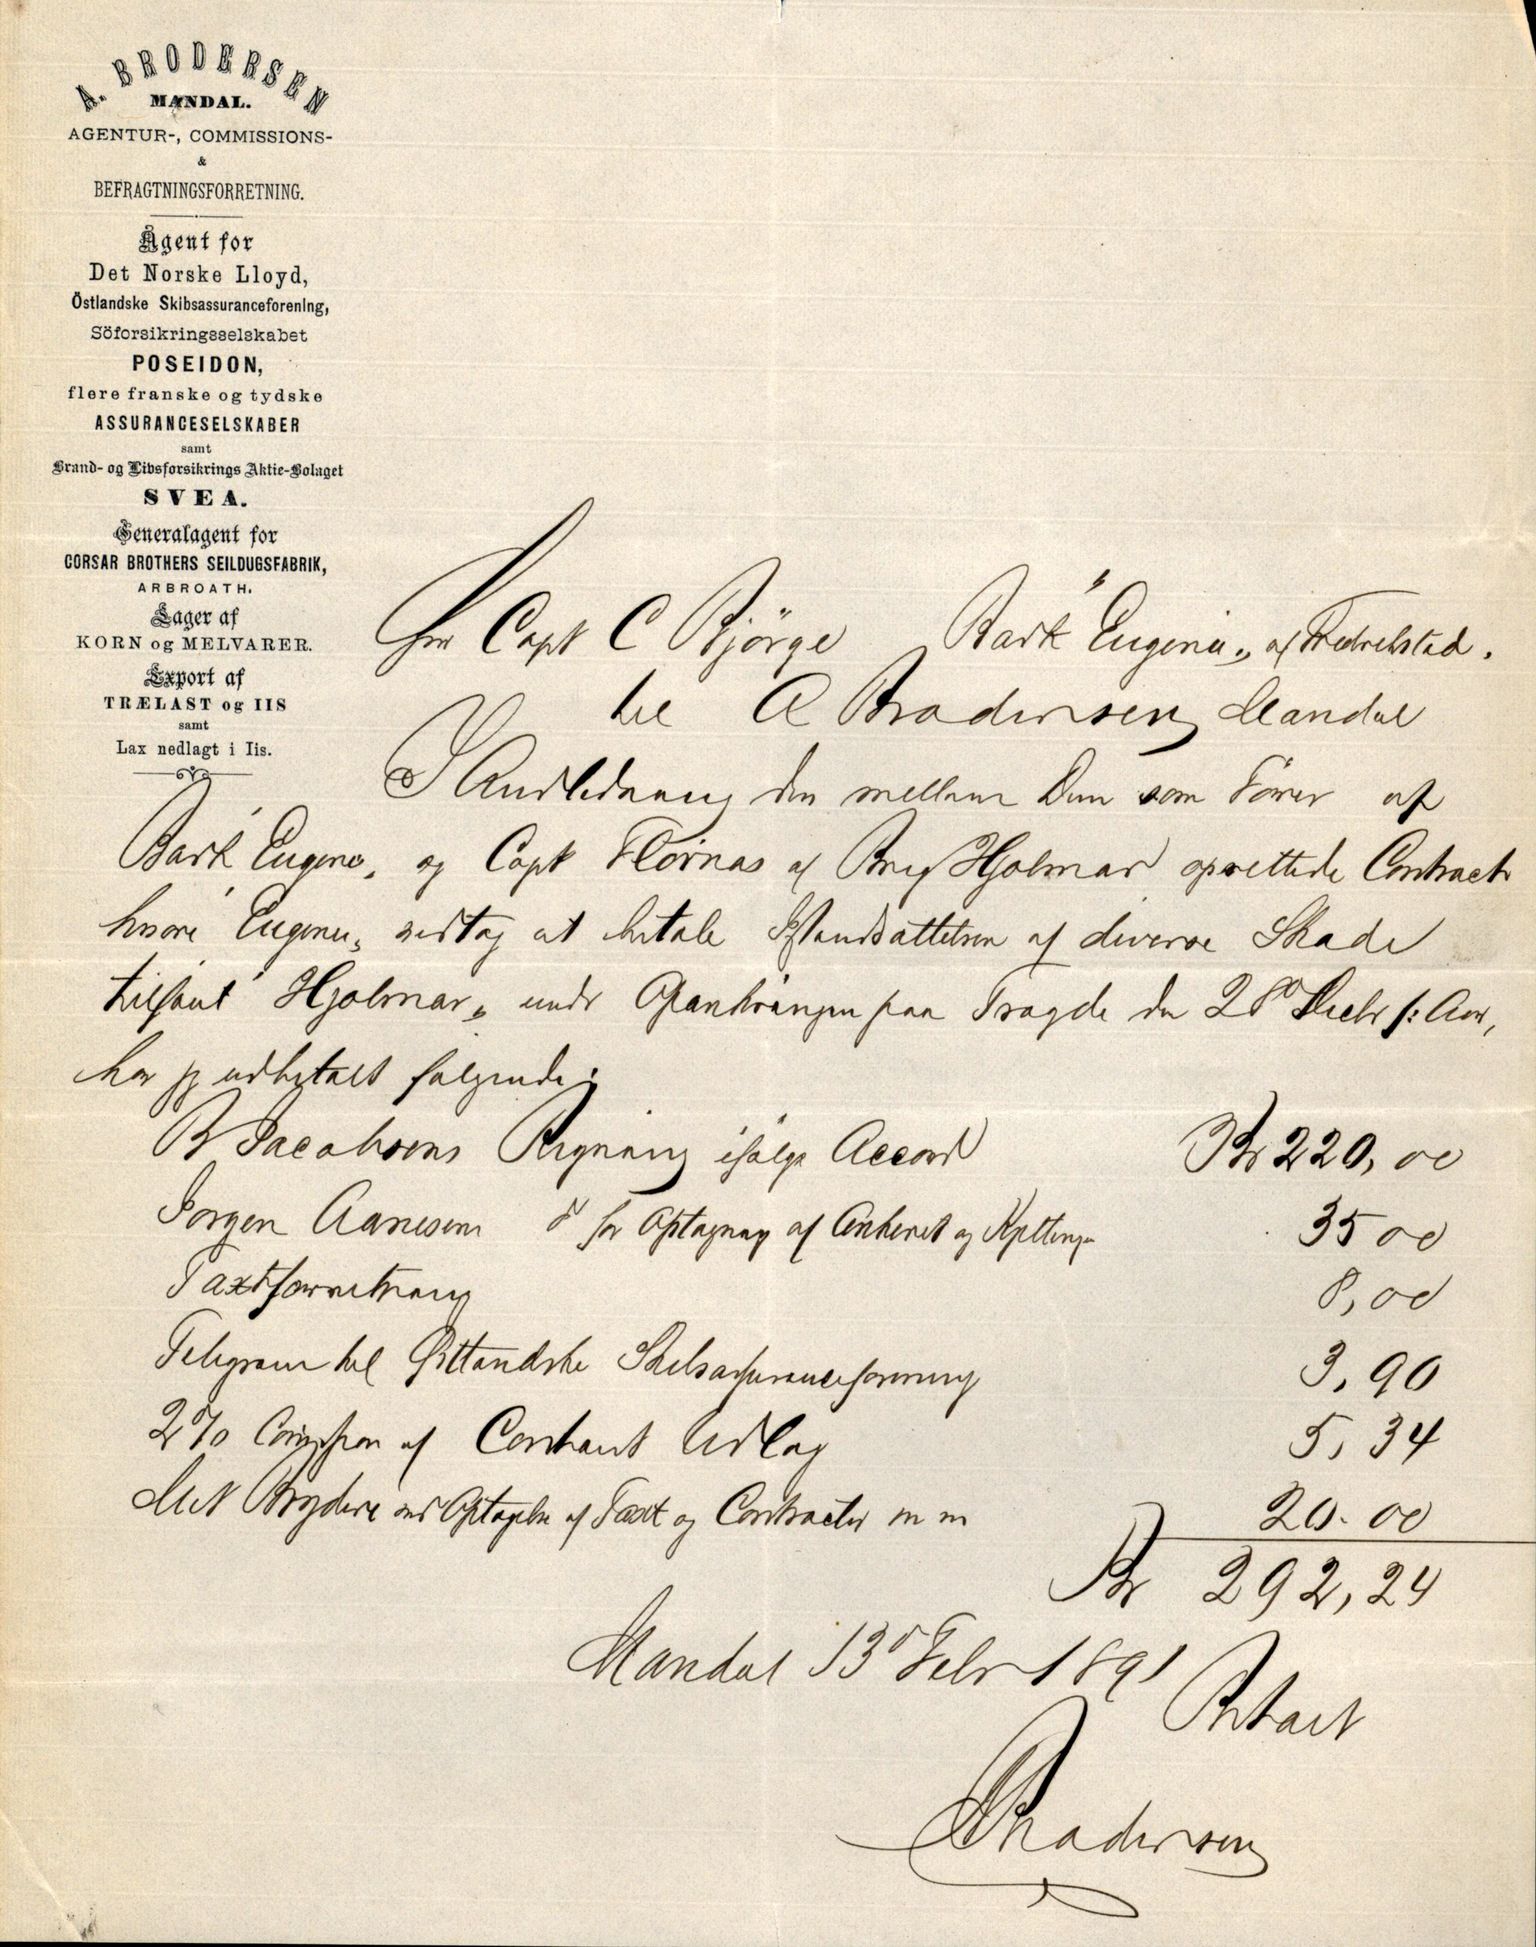 A. BRODERSEN
MANDAL.
AGENTUR-, COMMISSIONS-
&
BEFRAGTNINGSFORRETNING.
Agent for
Det Norske Lloyd,
Östlandske Skibsassuranceforening,
Söforsikringsselskabet
POSEIDON,
flere franske og tydske
ASSURANCESELSKABER
samt
Brand- og Livsforsikrings Aktie-Bolaget
SVEA.
Generalagent for
CORSAR BROTHERS SEILDUGSFABRIK,
ARBROATH.
Lager af
KORN og MELVARER.
Export af
TRÆLAST og IIS
samt
Lax nedlagt i Iis.
Hr Capt C Bjørge Bark "Eugenia" af Fredrikstad.
til A Brodersen Mandal
I Anledning den mellem Dem som Fører af
Bark "Eugenia" og Capt af Brig Hjalmar oprettede Contract
hvori "Eugenia" vedtog at betale Istandsættelsen af diverse Skade
tilføiet "Hjalmar" under paa Tregde den 28d Decbr f: Aar,
har jeg udbetalt følgende:
B Jacobsens Regning ifølge Accord Kr 220,00
Jørgen Aanesens do for Optagning af Ankeret og Kjettingen 35 00
Taxtforretning 8,00
Telegram til Østlandske Skibsassuranceforening 3,90
2% Commission af Contant Udlæg 5,34
Mit Bryderi ved Optagelse af Taxt og Contracter m m 20.00
Kr 292,24
Mandal 13d Febr 1891
Betalt
A Brodersen